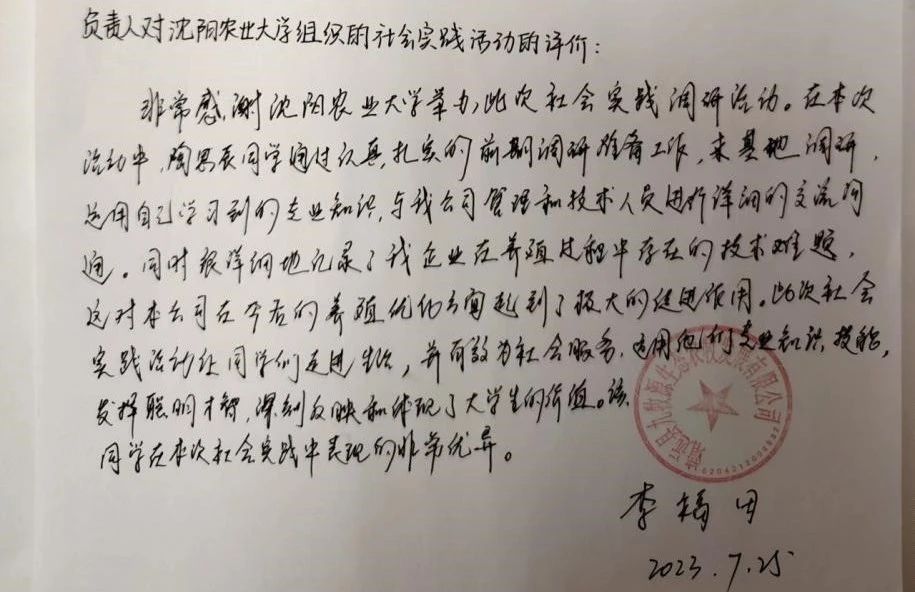 负责人对沈阳农业大学组织的社会实践活动的评价：
非常感谢沈阳农业大学举办此次社会实践调研活动。在本次
活动中，陶思辰同学通过认真、扎实的前期调研准备工作，来基地调研，
运用自己学习到的专业知识，与我公司管理和技术人员进行详细的交流沟
通。同时很详细地记录了我企业在养殖过程中存在的技术难题，
这对本公司在今后的养殖优化方面起到了极大的促进作用。此次社会
实践活动让同学们走进生活，并有效为社会服务，运用他们专业知识、技能，
发挥聪明才智，深刻反映和体现了大学生的价值。该
同学在本次社会实践中表现的非常优异。
李福田
2023.7.25